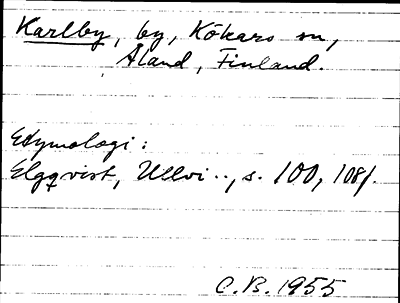 Karlby, by, Kökars sn,
Åland, Finland.
Etymologi:
Elgqvist, Ullvi.., s. 100, 108f.
C.B. 1955